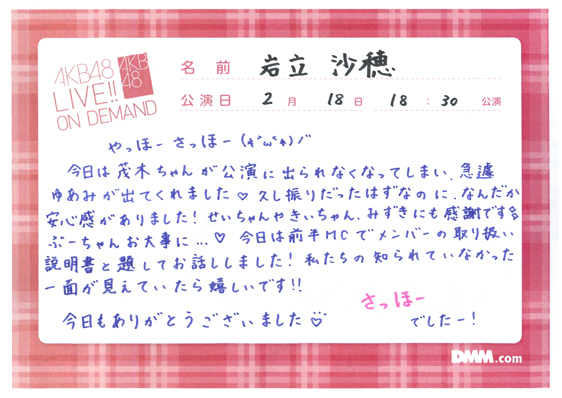 AKB48
LIVE!!
ON DEMAND
AKB
48
名前 岩立 沙穂
公演日 2月 18日 18:30 公演
やっほー さっほー(*´ω`*)ノ゛
今日は茂木ちゃんが公演に出られなくなってしまい、急遽
ゆあみが出てくれました♡久し振りだったはずなのに、なんだか
安心感がありました!せいちゃんやきぃちゃん、みずきにも感謝です
ぶーちゃんお大事に…♡ 今日は前半MCでメンバーの取り扱い
説明書と題してお話ししました!私たちの知られていなかった
一面が見えていたら嬉しいです!!
さっほー
今日もありがとうございました でしたー!
DMM.com